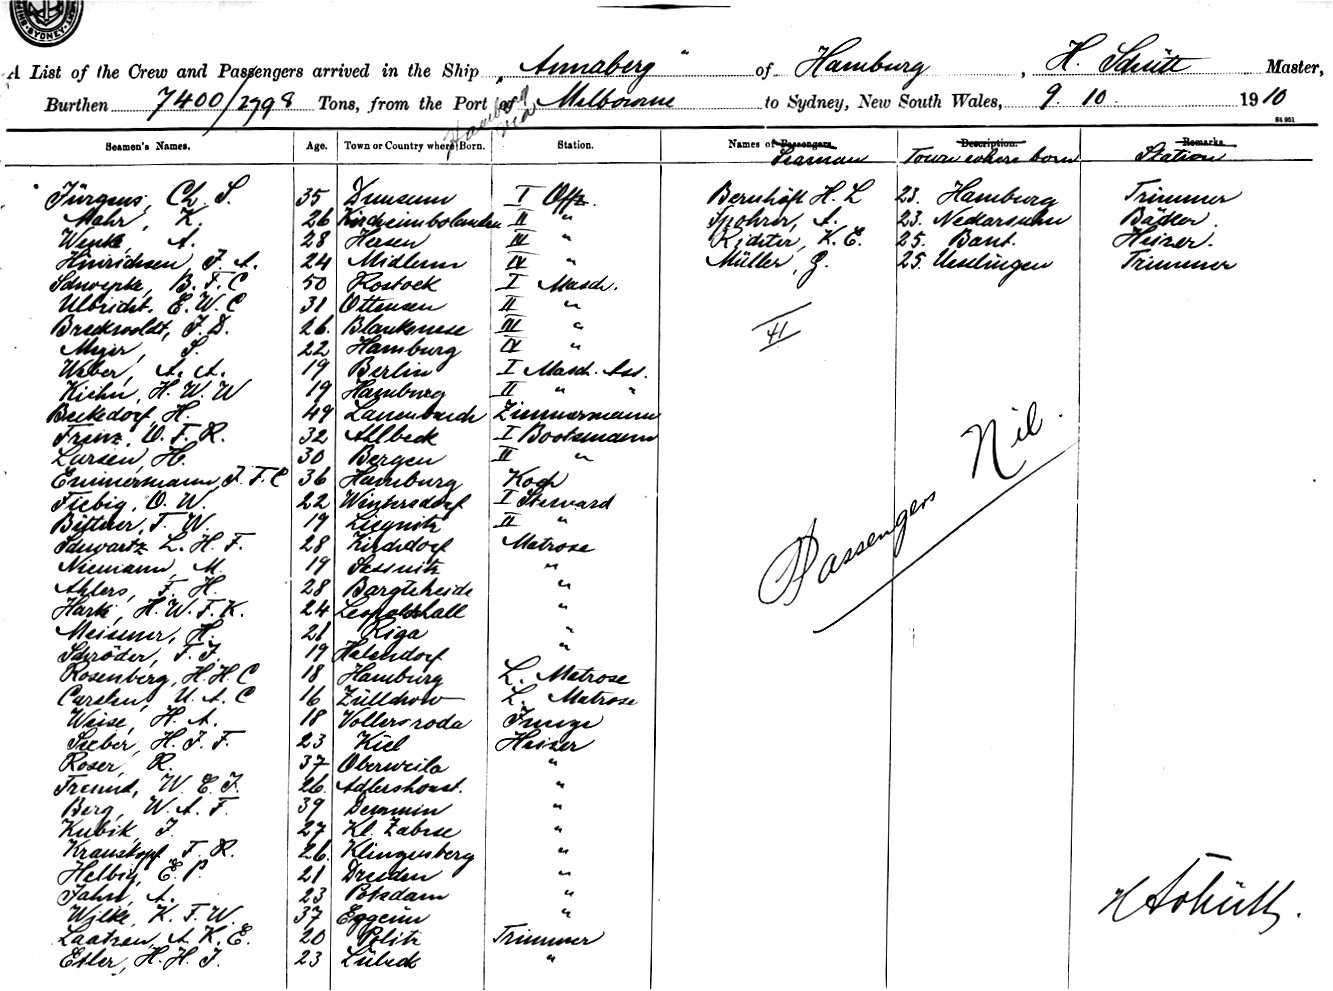 SYDNEY
A List of the Crew and Passengers arrived in the Ship "Annaberg" of Hamburg, H. Schütt Master,
Burthen 7400/2798 Tons, from the Port of Hamburg via Melbourne to Sydney, New South Wales, 9. 10. 1910
St 951
Seamen's Names. Age. Town or Country where Born. Station. Names of Passengers. Description. Remarks.
Seaman Town where born Station
Jürgens, Ch. S. 35 I Offz. Bernhöft H. L 23. Hamburg Trimmer
Mahr, K. 26 Kircheimbolanden II " Spohrer, A. 23. Nedarsulm Bäcker.
Wenke, A. 28 Hersen III " Richter, K. E. 25. Bant. Heizer.
Hinrichsen, J. A. 24 Midlum IV " Müller, G. 25. Uesslingen Trimmer
B. F. C 50 Rostock I Masch.
Ulbricht, E. W. C 31 Ottensen II "
Bredwoldt, J. D. 26. Blankenese III "
Meyer, S. 22 Hamburg IV "
Weber, A. A. 19 Berlin I Masch. Ass.
Kiehn, H. W. W 19 Hamburg II " "
Beckedorf, H. 49 Zimmermann
Frinz, O. F. R. 32 Ahlbeck I Bootsmann
Larsen, H. 30 Bergen II "
Emmermann, J. F. C 36 Hamburg Koch
Fiebig, O. W. 22 Wintersdorf I Steward
Bittner, F. W. 19 Liegnitz II "
Schwartz L. H. F. 28 Kirchdorf Matrose
Niemann, M. 19 Sassnitz "
Ahlers, F. H. 28 Bargteheide "
Hark, H. W. F. K. 24 Leopoldshall "
Meissner, H. 21 Riga "
Schröder, F. J. 19 Halendorf "
Rosenberg, H. H. C 18 Hamburg L. Matrose
Carsten, U. A. C 16 Züllchow L. Matrose
Weise, H. A. 18 Vollersroda Junge
Sieber, H. J. F. 23 Kiel Heizer
Roser, R. 37 Oberweila "
Freund, W. E. J. 26. Adlershorst. "
Berg, W. A. F. 39 Demmin "
Kubik, J. 27 Kl. Zabrze "
Krauskopf F. R. 26. Klingenberg "
Helbig, E. P. 21 Dresden "
Jahn, A. 23 Potsdam "
Wilke, K. F. W. 37 Eggesin "
Laatzen, A. K. E. 20 Pölitz Trimmer
Esler, H. H. J. 23 Lübeck "
4
Passengers Nil.
H Schütt.